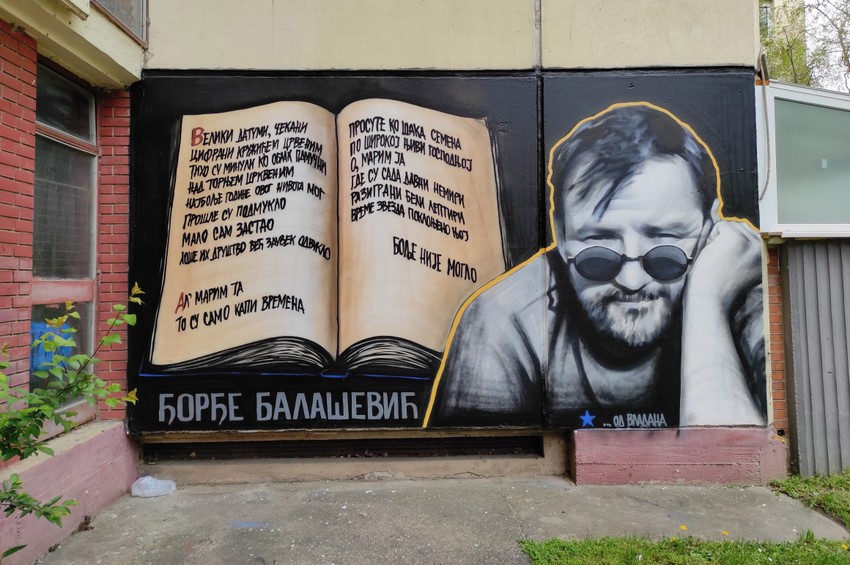 Велики датуми, чекани
цифрани кружићеи црвеним
Тихо су минули ко облак памучни
над торњем црквеним
Најбоље године овог живота мог
прошле су подмукло
мало сам застао
лоше их друштво већ заувек одвукло
Ал' марим ја
то су само капи времена
просуте ко шака семена
по широкој њиви господњој
о, марим ја
где су сада давни немири
разиграни бели лептири
време звезда поклоњено њој
боље није могло
ЂОРЂЕ БАЛАШЕВИЋ
... ОД ВЛАДАНА